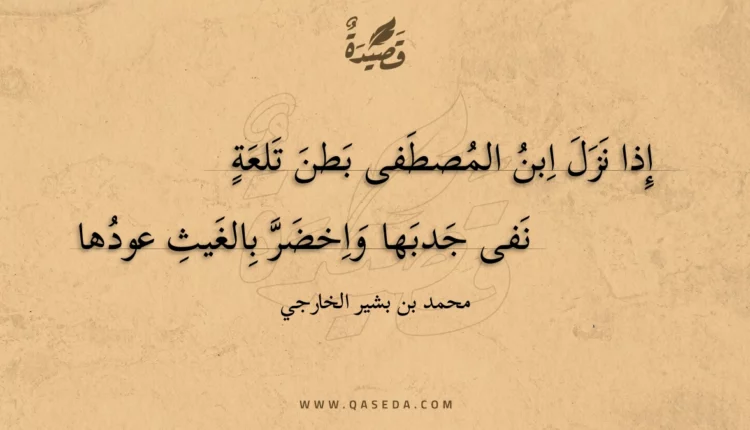 قَصِيْدَةٌ
إِذا نَزَلَ اِبنُ المُصطَفى بَطنَ تَلعَةٍ
نَفى جَدبَها وَاِخضَرَّ بِالغَيثِ عودُها
محمد بن بشير الخارجي
WWW.QASEDA.COM